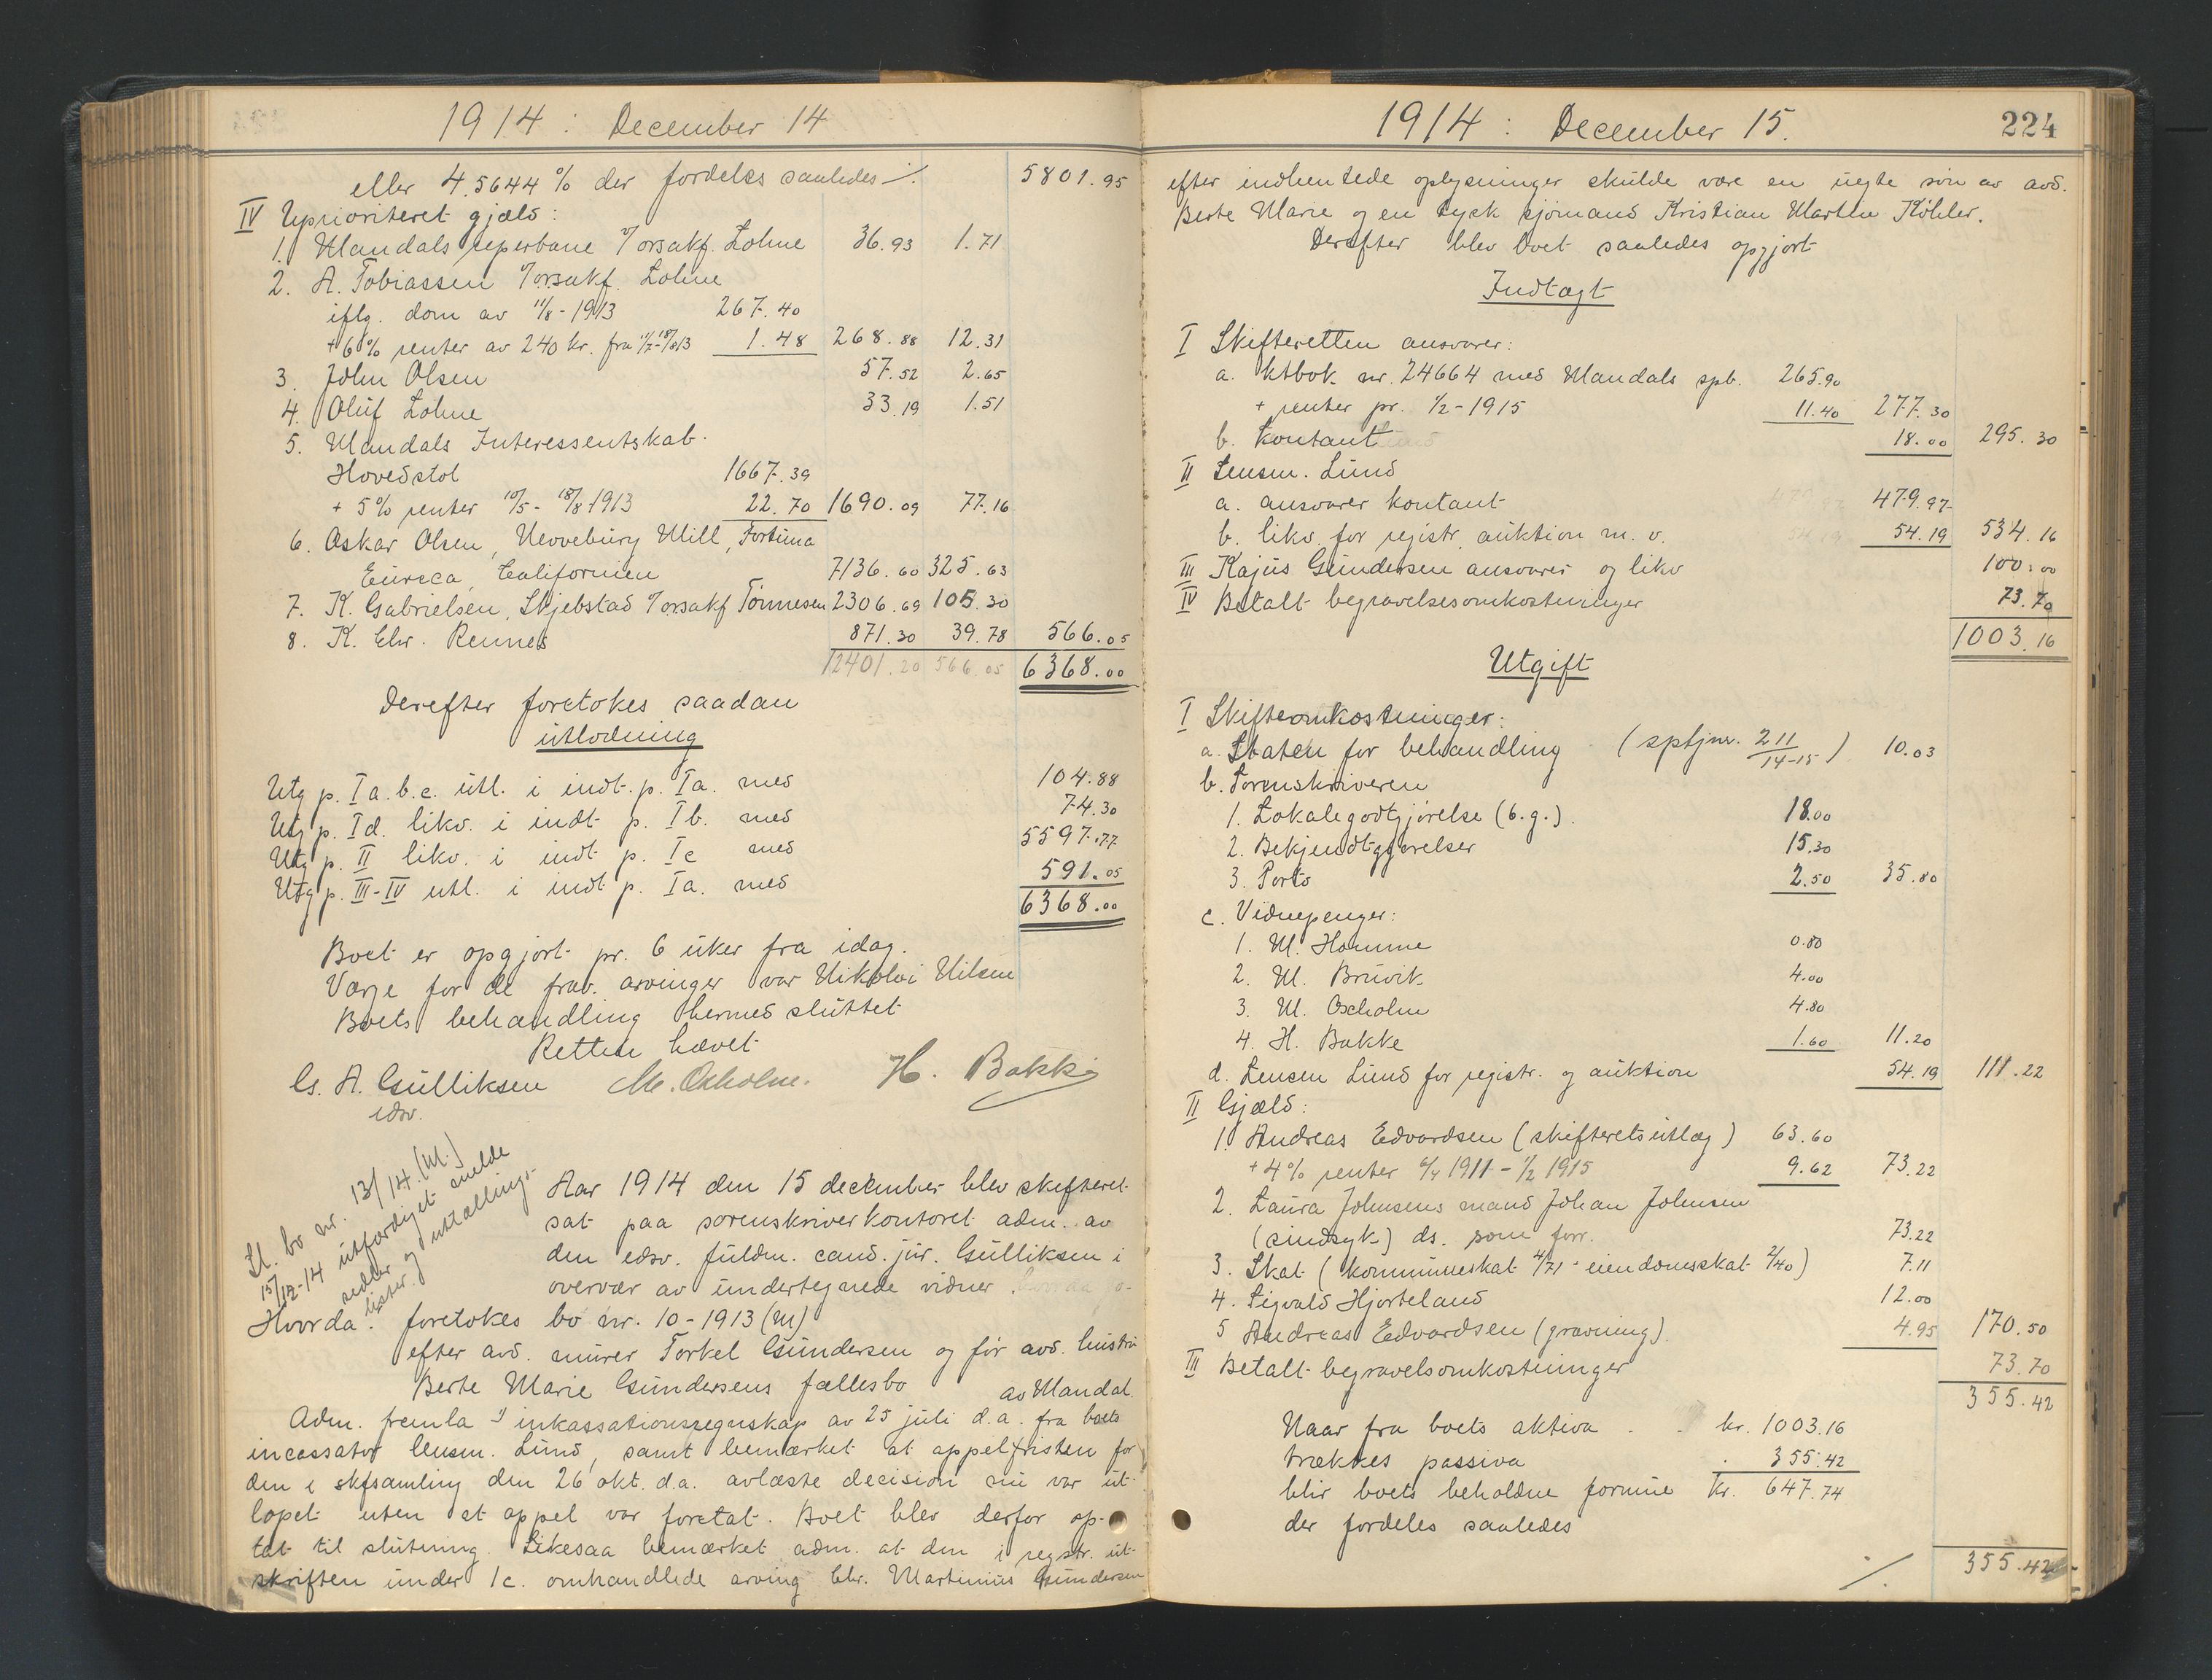 1914: December 14
eller 4.5644 % der fordeles saaledes ./. 5801.95
IV Uprioriteret gjæld:
1. Mandals reperbane v/ orsakf. Lohne 36.93 1.71
2. A. Tobiassen v/ orsakf. Lohne
iflg. dom av 11/8-1913 267.40
+ 6% renter av 240 kr. fra 11/7-18/8 13 1.48 268.88 12.31
3. John Olsen 57.52 2.65
4. Oluf Lohne 33.19 1.51
5. Mandals Interessentskab.
Hovedstol 1667.39
+ 5% renter 10/5 - 18/8 1913 22.70 1690.09 77.16
6. Oskar Olsen, Newebury Mill, Fortuna
Eureca, Californien 7136.60 325.63
7. K. Gabrielsen, Skjebstad v/ orsakf Tønnesen 2306.69 105.30
8. K. Chr. Rennes 871.30 39.78 566.05
12401.20 566.05 6368.00
Derefter foretokes saadan
utlodning
Utg p. I a. b. c. utl. i indt. p. Ia. med 104.88
Utg p. Id. likv. i indt p. Ib. med 74.30
Utg p. II likv. i indt p. Ic med 5597.77
Utg p. III-IV utl. i indt p. Ia. med 591.05
6368.00
Boet er opgjort pr. 6 uker fra idag.
Værje for de frav. arvinger var Nikolai Nilsen
Boets behandling hermed sluttet
Retten hævet
Gs. A. Gulliksen M. Oxholm. H. Bakke
edsv.
St. bo nr. 13/14. (M.)
15/12-14 utfærdiget
sedler og
lister.
Aar 1914 den 15 december blev skifteret
sat paa sorenskriverkontoret adm. av
den edsv. fuldm. cand. jur. Gulliksen i
overvær av undertegnede vidner.
Hvorda: foretokes bo nr. 10-1913 (M)
efter avd. murer Torkel Gundersen og før avd. hustru
Berte Marie Gundersens fællesbo av Mandal.
Adm. fremla 1) inkassationsregnskap av 25 juli d.a. fra boets
incassator lensm. Lund, samt bemærket at appelfristen for
den i skfsamling den 26 okt. d.a. avlæste decision nu var ut-
løpet uten at appel var foretat. Boet blev derfor op-
tat til slutning. Likesaa bemærket adm. at den i regstr. ut-
skriften under 1c. omhandlede arving Chr. Martinius Gundersen
1914: December 15. 224
efter indhentede oplysninger skulde være en uegte søn av avd.
Berte Marie og en tysk sjømand Kristian Martin Køhler.
Derefter blev boet saaledes opgjort
Indtægt
I Skifteretten ansvarer:
a. ktbok nr. 24664 med Mandals spb. 265.90
+ renter pr. 1/2-1915 11.40 277.30
b. kontant 18.00 295.30
II Lensm. Lund
a. ansvarer kontant 479.97
b. likv. for registr. auktion m. v. 54.19 534.16
III Kajus Gundersen ansvarer og likv 100.00
IV Betalt begravelsesomkostninger 73.70
1003.16
Utgift
I Skifteomkostninger:
a. Staten for behandling (sptjnr. 211/14-15) 10.03
b. Sorenskriveren
1. Lokalegodtgjørelse (6.g.). 18.00
2. Bekjendtgjørelser 15.30
3. Porto 2.50 35.80
c. Vidnepenger:
1. M. Homme 0.80
2. M. Bruvik 4.00
3. M. Oxholm 4.80
4. H. Bakke 1.60 11.20
d. Lensm Lund for registr. og auktion 54.19 111.22
II Gjæld:
1. Andreas Edvardsen (skifteretsutlæg) 63.60
+ 4% renter 1911-1/2 1915 9.62 73.22
2. Laura Johnsens mand Johan Johnsen
(sindsyk) ds. som forr. 73.22
3. Skat (kommuneskat 4/71 - eiendomsskat 2/40) 7.11
4. Sigvald Hjorteland 12.00
5 Andreas Edvardsen (gravning). 4.95 170.50
III Betalt begravelsomkostninger 73.70
355.42
Naar fra boets aktiva . . kr. 1003.16
trækkes passiva . 355.42
blir boets beholdne formue kr. 647.74
der fordeles saaledes
./. 355.42